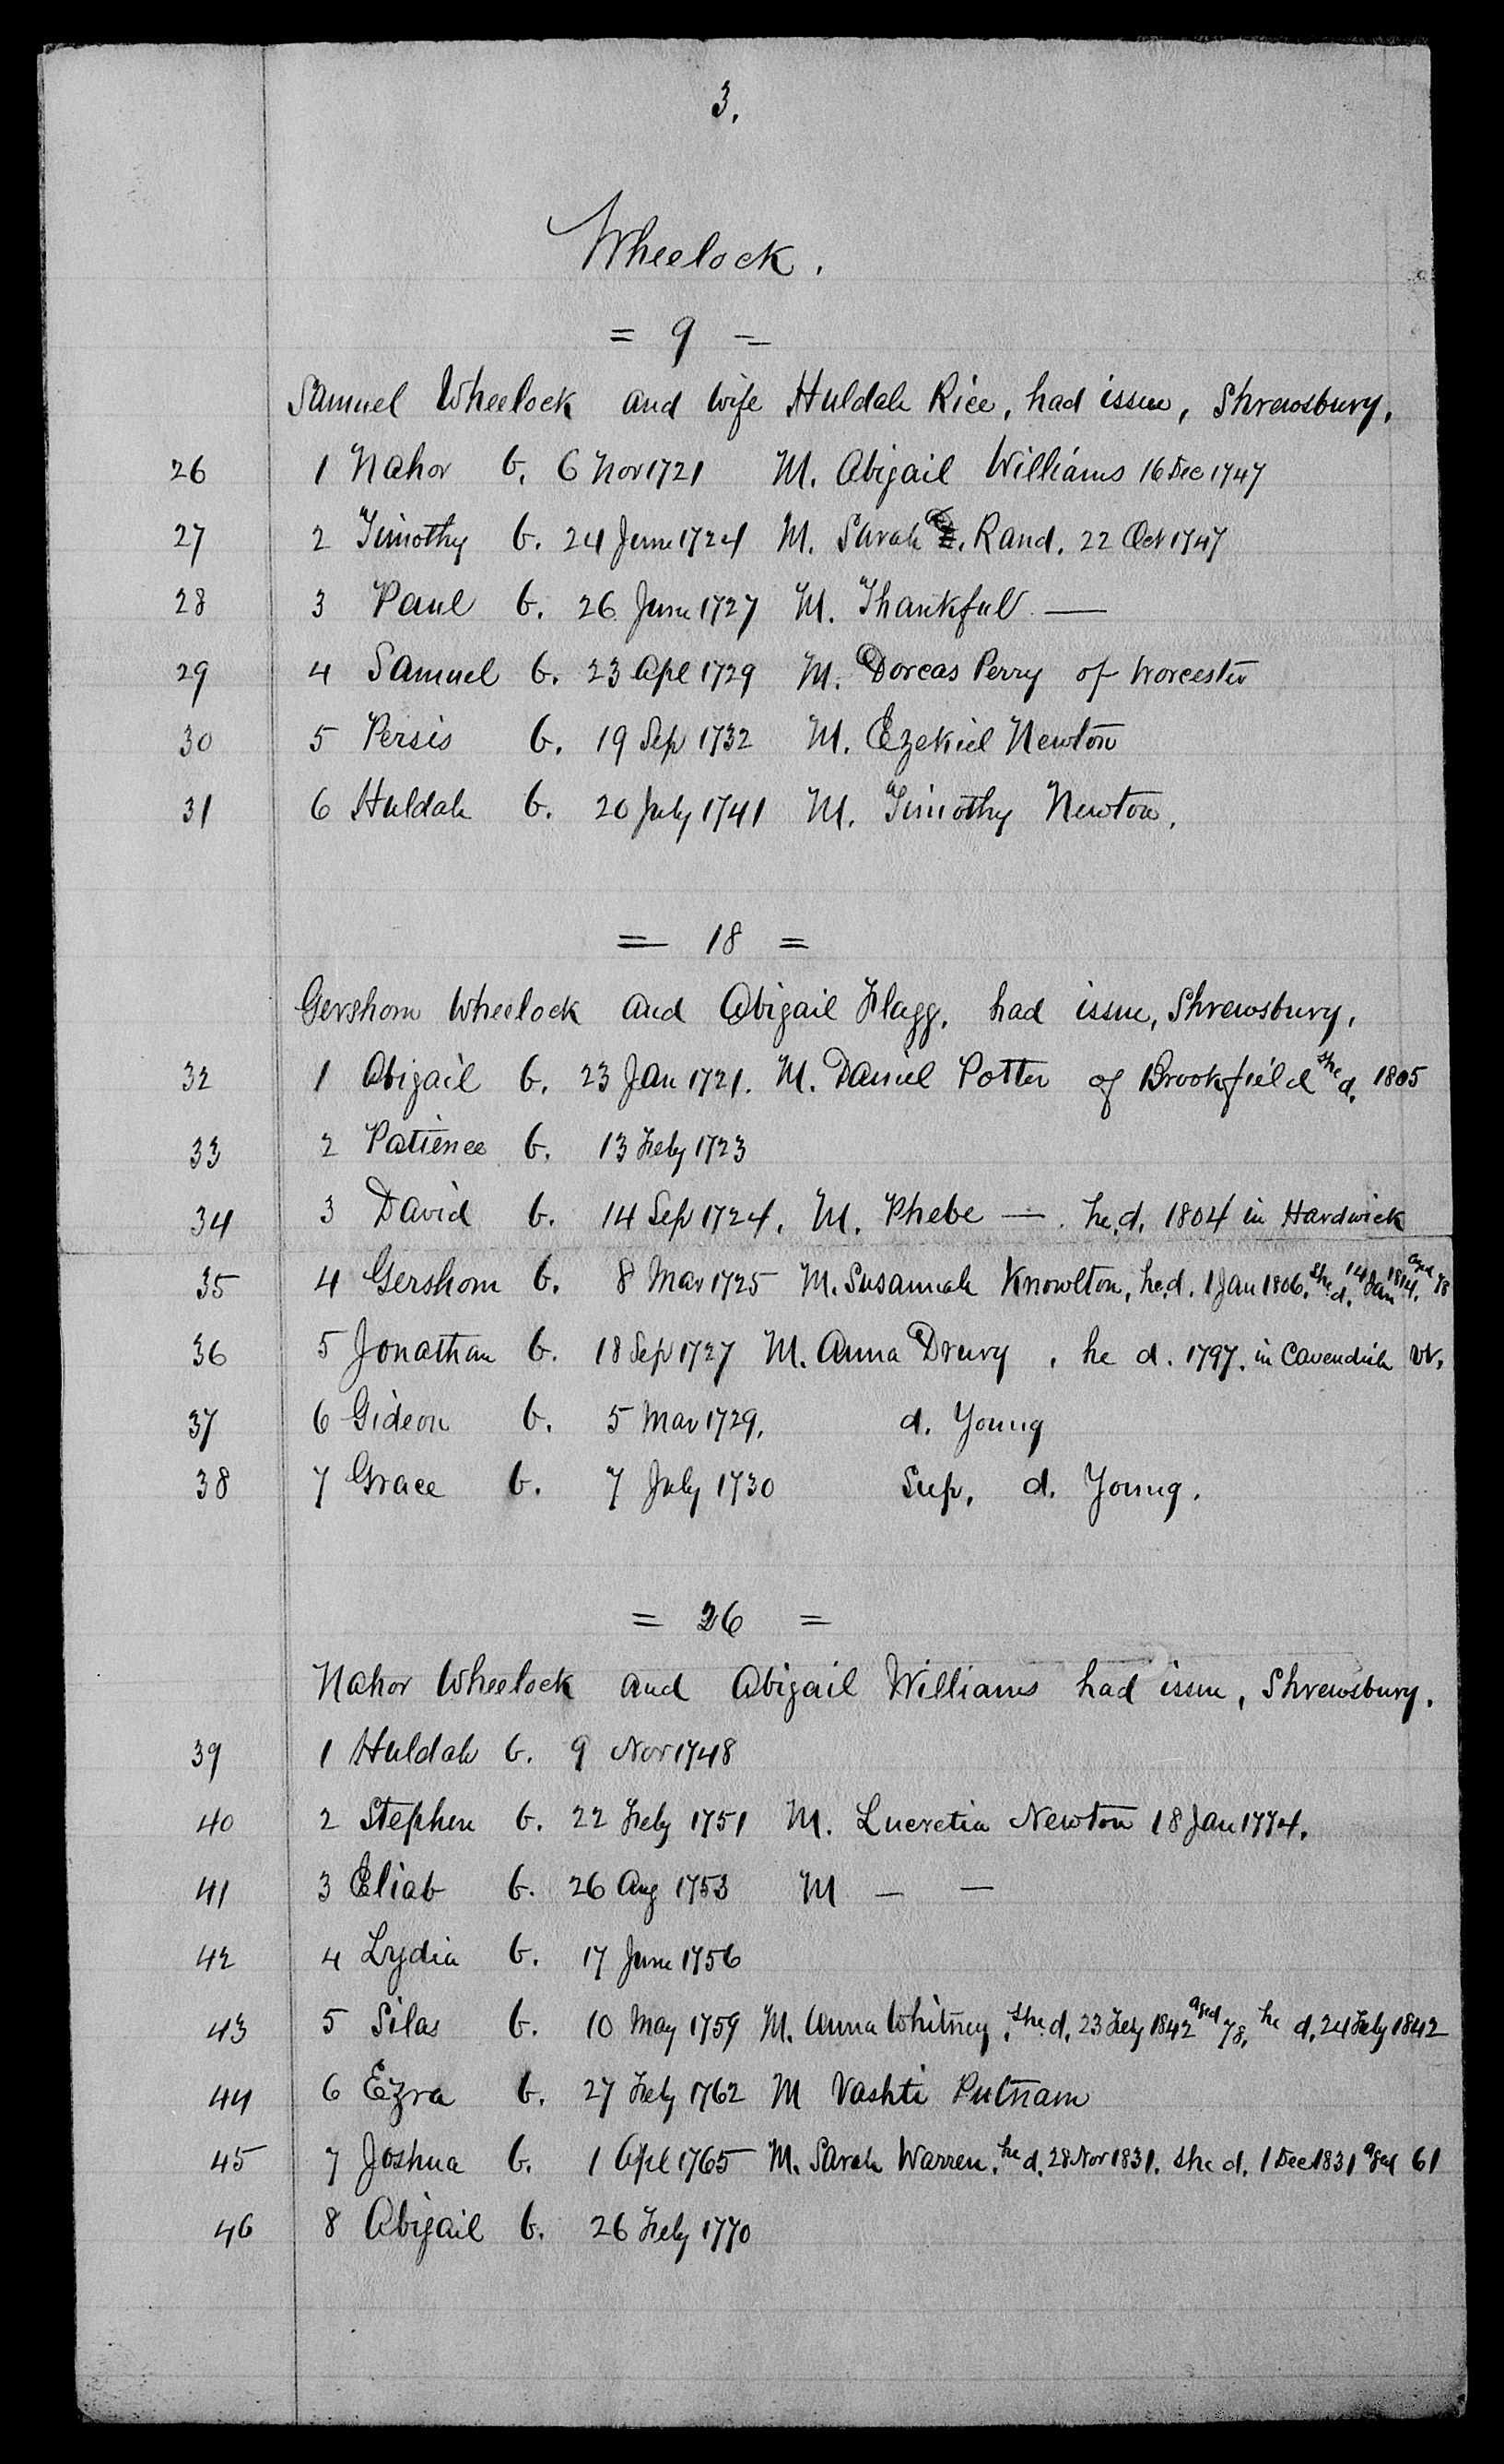 3.
Wheelock.
= 9 =
Samuel Wheelock and wife Huldah Rice, had issue, Shrewsbury,
26 1 Nahor b. 6 Nov 1721 M. Abigail Williams 16 Dec 1747
27 2 Timothy b. 24 June 1724 M. Sarah Rand. 22 Oct 1747
28 3 Paul b. 26 June 1727 M. Thankful —
29 4 Samuel b. 23 Apl 1729 M. Dorcas Perry of Worcester
30 5 Persis b. 19 Sep 1732 M. Ezekiel Newton
31 6 Huldah b. 20 July 1741 M. Timothy Newton.
= 18 =
Gershom Wheelock and Abigail Flagg, had issue, Shrewsbury,
32 1 Abigail b. 23 Jan 1721. M. Daniel Potter of Brookfield she d. 1805
33 2 Patience b. 13 Feby 1723
34 3 David b. 14 Sep 1724. M. Phebe —. he d. 1804 in Hardwick
35 4 Gershom b. 8 Mar 1725 M. Susannah Knowlton, he d. 1 Jan 1806. She d. 14 Jan 1814. aged 78
36 5 Jonathan b. 18 Sep 1727 M. Anna Drury, he d. 1797. in Cavendish Vt.
37 6 Gideon b. 5 Mar 1729. d. Young
38 7 Grace b. 7 July 1730 Sup. d. Young.
= 26 =
Nahor Wheelock and Abigail Williams had issue, Shrewsbury.
39 1 Huldah b. 9 Nov 1748
40 2 Stephen b. 22 Feby 1751 M. Lucretia Newton 18 Jan 1774.
41 3 Eliab b. 26 Aug 1753 M — —
42 4 Lydia b. 17 June 1756
43 5 Silas b. 10 May 1759 M. Anna Whitney, She d. 23 Feby 1842 aged 78, he d. 24 Feby 1842
44 6 Ezra b. 27 Feby 1762 M Vashti Putnam
45 7 Joshua b. 1 Apl 1765 M. Sarah Warren. he d. 28 Nov 1831. she d. 1 Dec 1831 aged 61
46 8 Abigail b. 26 Feby 1770